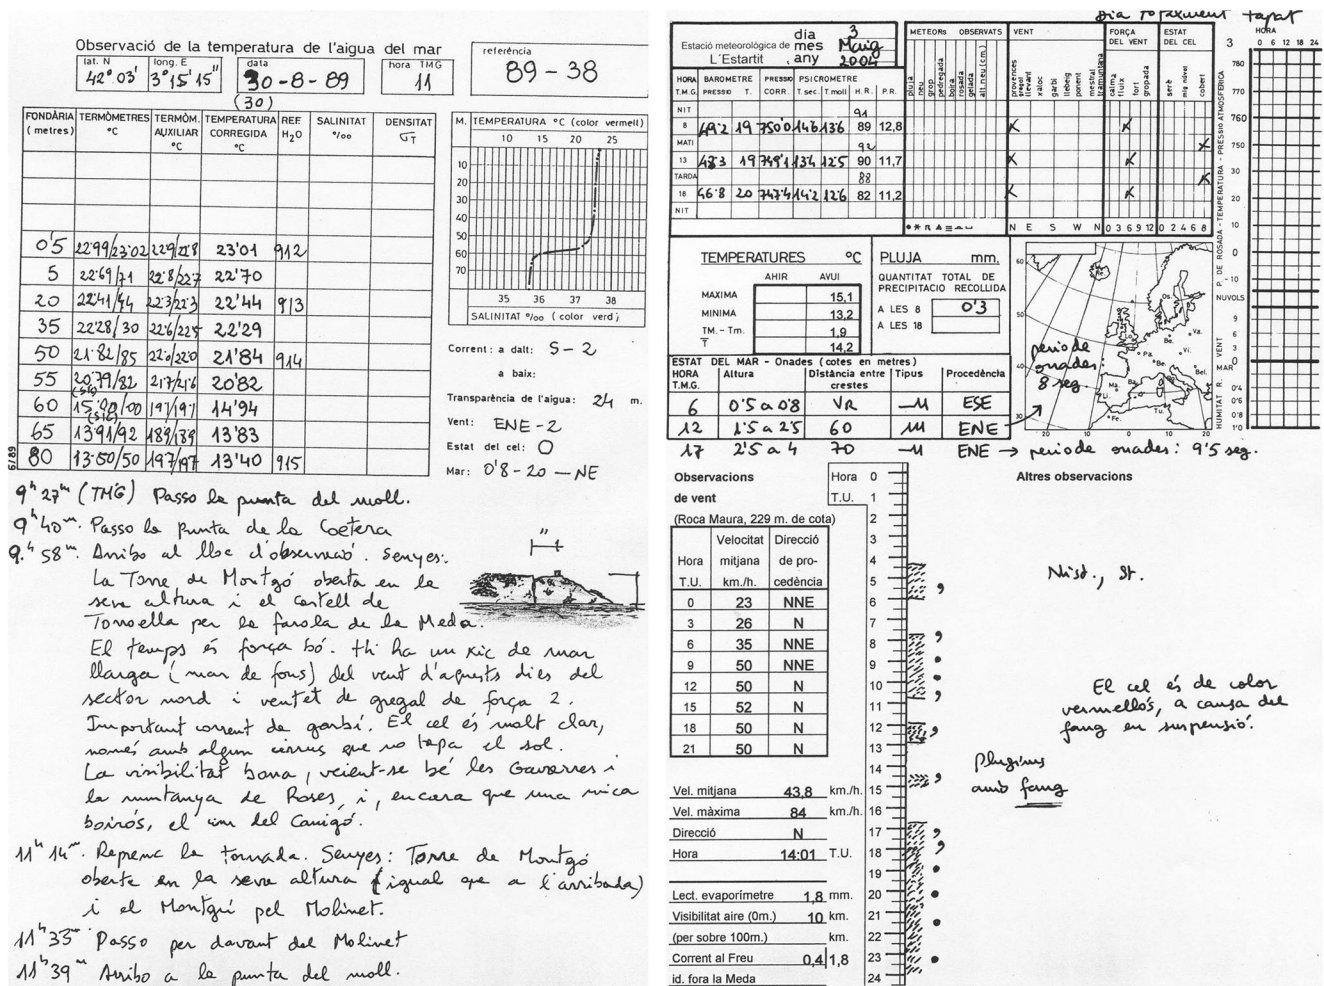 Observació de la temperatura de l'aigua del mar
lat. N 42º 03' long. E 3º 15' 15" data 30-8-89 hora TMG 11
(30)
referència
89-38
FONDÀRIA (metres) TERMÒMETRES ºC TERMÒM. AUXILIAR ºC TEMPERATURA CORREGIDA ºC REF. H2O SALINITAT º/oo DENSITAT σT
0'5 22'99/23'02 22'9/22'8 23'01 912
5 22'69/71 22'8/22'7 22'70
20 22'41/44 22'3/22'3 22'44 913
35 22'28/30 22'6/22'5 22'29
50 21'82/85 22'0/22'0 21'84 914
55 20'79/82 21'7/21'6 20'82
(sic)
60 15'00/00 19'7/19'7 14'94
(sic)
65 13'91/92 18'9/18'9 13'83
80 13'50/50 19'7/19'7 13'40 915
6/89
M. TEMPERATURA ºC (color vermell)
10 15 20 25
10
20
30
40
50
60
70
35 36 37 38
SALINITAT º/oo ( color verd)
Corrent: a dalt: S-2
a baix:
Transparència de l'aigua: 24 m.
Vent: ENE-2
Estat del cel: O
Mar: 0'8-20 — NE
9h 27m (TMG) Passo la punta del moll.
9h 40m. Passo la Punta de la Coetera
9h 58m. Arribo al lloc d'observació. Senyes:
La Torre de Montgó oberta en la
seva altura i el castell de
Torroella per la farola de la Meda.
El temps és força bó. Hi ha un xic de mar
llarga (mar de fons) del vent d'aquests dies del
sector nord i ventet de gregal de força 2.
Important corrent de garbí. El cel és molt clar,
només amb algun cirrus que no tapa el sol.
La visibilitat bona, veient-se bé les Gavarres i
la muntanya de Roses, i, encara que una mica
boirós, el cim del Canigó.
11h 14m. Reprenc la tornada. Senyes: Torre de Montgó
oberta en la seva altura (igual que a l'arribada)
i el Montgrí pel Molinet.
11h 33m Passo per davant del Molinet
11h 39m Arribo a la punta del moll.
Dia totalment tapat
Estació meteorològica de L'Estartit
dia 3
mes Maig
any 2004
HORA T.M.G. BAROMETRE PRESSIO T. PRESSIO CORR. PSICROMETRE T sec. T.moll H. R. P.R.
NIT 91
8 49'2 19 750'0 14'6 13'6 89 12,8
MATI 92
13 48'3 19 749'1 13'4 12'5 90 11,7
TARDA 88
18 46'8 20 747'4 14'2 12'6 82 11,2
NIT
METEORs OBSERVATS
pluja neu grop pedregada boira rosada gelada alt.neu (cm.)
VENT
provences gregal llevant xaloc garbi llebeig ponent mestral tramuntana
N E S W N
FORÇA DEL VENT
calma fluix fort gropada
0 3 6 9 12
ESTAT DEL CEL
serè mig núvol cobert
0 2 4 6 8
3
HORA
0 6 12 18 24
780
770
760
750
30
20
10
0
- 10
- 20
NUVOLS
9
6
3
0
MAR
0'4
0'6
0'8
1'0
HUMITAT R. MAR VENT P. DE ROSADA - TEMPERATURA - PRESSIO ATMOSFERICA
TEMPERATURES ºC
AHIR AVUI
MAXIMA 15,1
MINIMA 13,2
TM. - Tm. 1,9
T 14,2
PLUJA mm.
QUANTITAT TOTAL DE PRECIPITACIO RECOLLIDA
A LES 8 0'3
A LES 18
ESTAT DEL MAR - Onades (cotes en metres)
HORA T.M.G. Altura Distància entre crestes Tipus Procedència
6 0'5 a 0'8 VR ESE
12 1'5 a 2'5 60 ENE
17 2'5 a 4 70 ENE → periode onades: 9'5 seg.
periode
onades
8 seg
60
50
40
30
20 10 0 10 20
Re. Os. Va. Be. Pa. Vi. Bel. Ma. Ba. Li. Tu. Fe.
Observacions
de vent
(Roca Maura, 229 m. de cota)
Hora T.U. Velocitat mitjana km./h. Direcció de procedència
0 23 NNE
3 26 N
6 35 NNE
9 50 NNE
12 50 N
15 52 N
18 50 N
21 50 N
Vel. mitjana 43,8 km./h.
Vel. màxima 84 km./h.
Direcció N
Hora 14:01 T.U.
Lect. evaporímetre 1,8 mm.
Visibilitat aire (0m.) 10 km.
(per sobre 100m.) km.
Corrent al Freu 0,4 1,8
id. fora la Meda
Hora T.U.
0
1
2
3
4
5
6
7
8
9
10
11
12
13
14
15
16
17
18
19
20
21
22
23
24
Altres observacions
Nist., St.
El cel és de color
vermellós, a causa del
fang en suspensió.
Plugims
amb fang